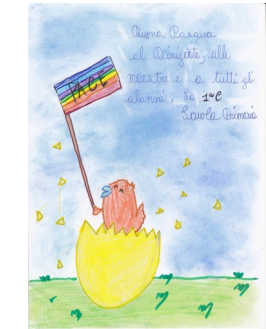 Buona Pasqua
al Dirigente, alle
maestre e a tutti gli
alunni, La 1ªC
Scuola Primaria
PACE